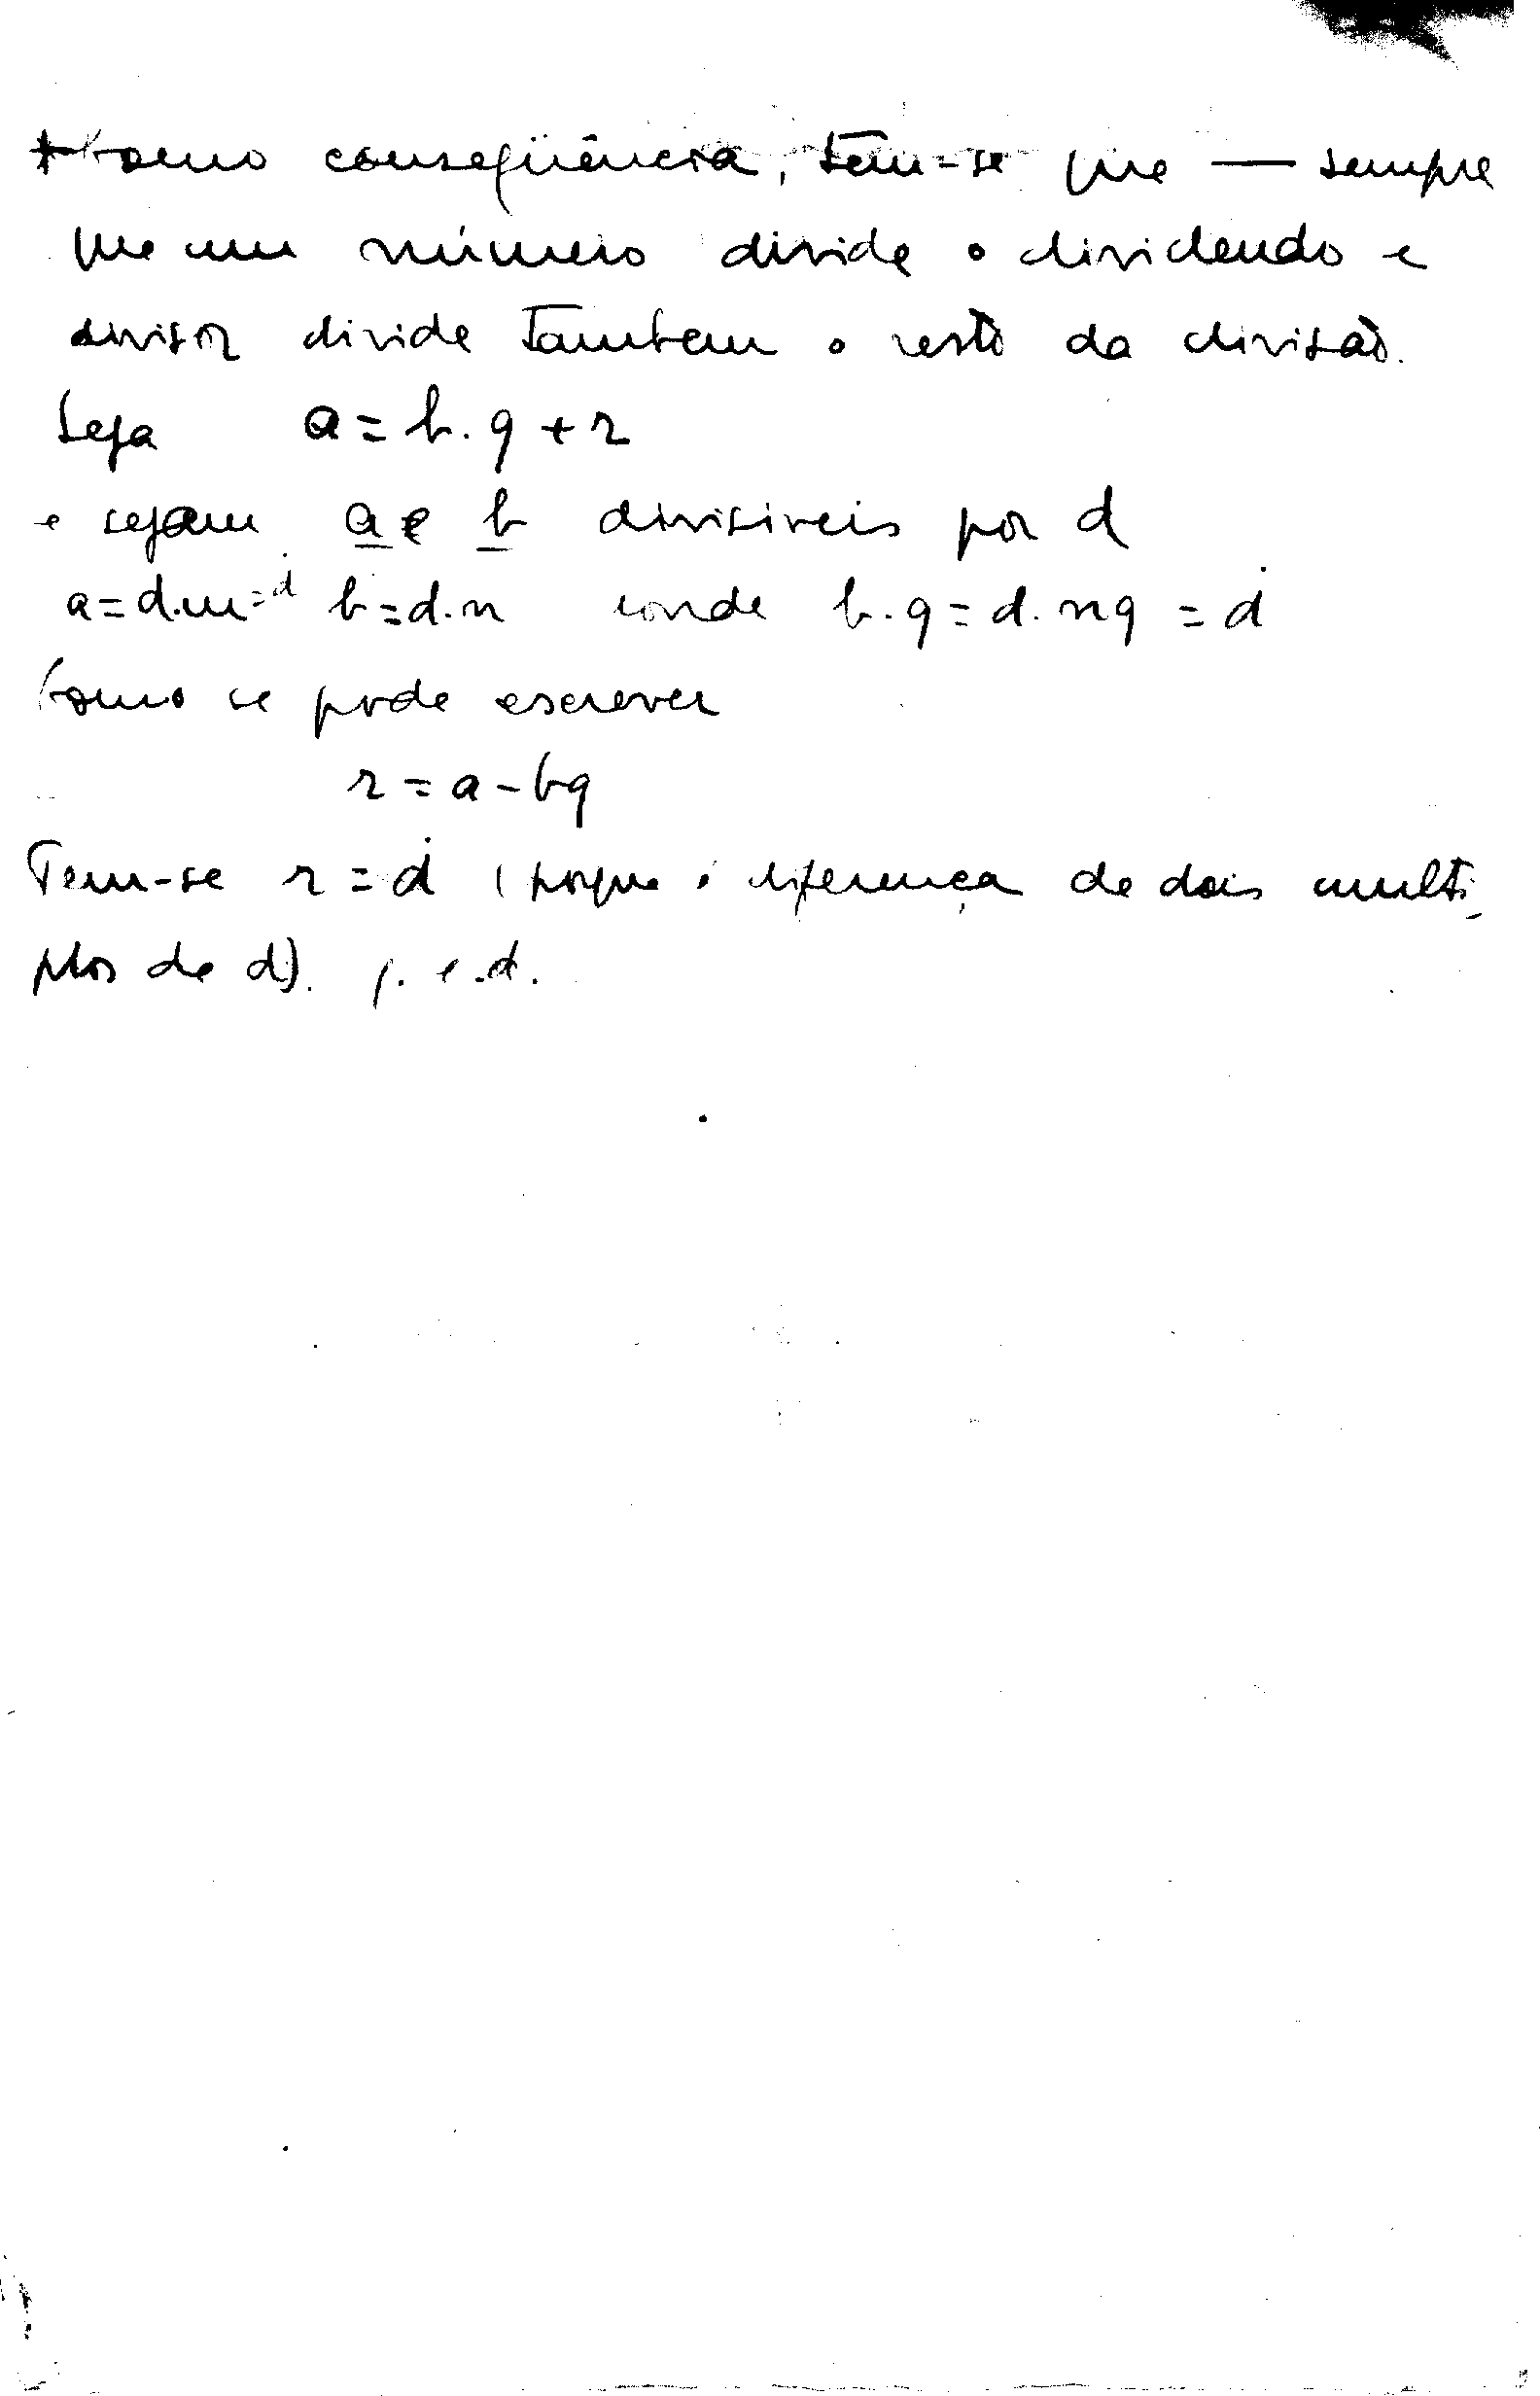 * Como conseqüência, tem-se que — sempre
que um número divide o dividendo e
divisor divide Tambem o resto da divisão.
Seja a = b. q + r
e sejam a e b divisiveis por d
a = d.m = ḋ b = d.n onde b. q = d. nq = ḋ
Como se pode escrever
r = a - bq
Tem-se r = ḋ (porque é diferença de dois multi
plos de d). q. e. d.